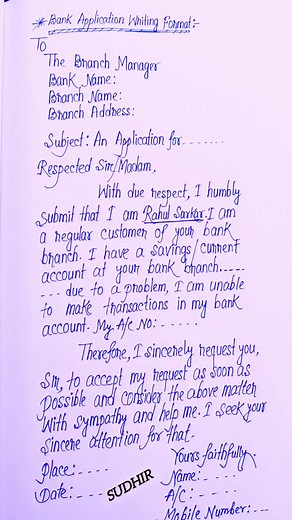 * Bank Application Writing Format:-
To
The Branch Manager
Bank Name:
Branch Name:
Branch Address:
Subject: An Application for.......
Respected Sir/Madam,
With due respect, I humbly
submit that I am Rahul Sarkar. I am
a regular customer of your bank
branch. I have a savings/current
account at your bank branch.....
... due to a problem, I am unable
to make transactions in my bank
account. My A/c No: - - - - -
Therefore, I sincerely request you,
Sir, to accept my request as soon as
Possible and consider the above matter
With sympathy and help me. I seek your
sincere attention for that.
Place: - - - -
Yours faithfully.
Date: - - - -
SUDHIR
Name: - - - -
A/C: - - - -
Mobile Number: - -